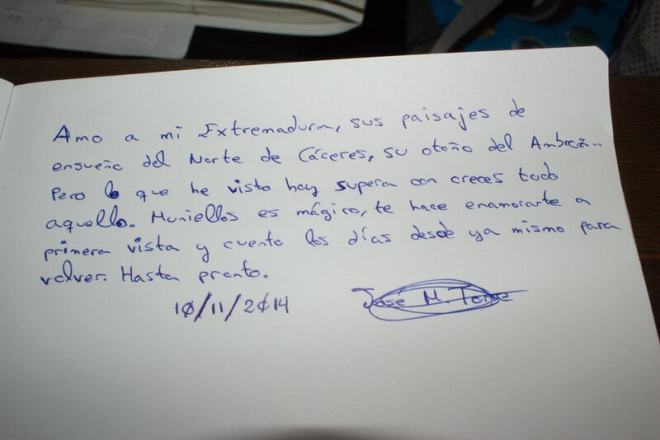 Amo a mi Extremadura, sus paisajes de
ensueño del Norte de Cáceres, su otoño del Ambroz...
Pero lo que he visto hoy supera con creces todo
aquello. Muniellos es mágico, te hace enamorarte a
primera vista y cuento los días desde ya mismo para
volver. Hasta pronto.
10/11/2014
José M. Torne